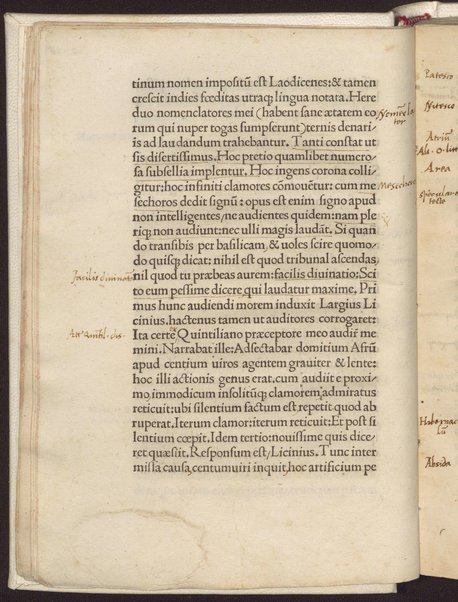 tinum nomen impositũ est Laodicenes:& tamen
crescit indies fœditas utraq; lingua notata. Here
duo nomenclatores mei (habent sane ætatem eo
rum qui nuper togas sumpserunt) ternis denari/
is ad laudandum trahebantur. Tanti constat ut
sis disertissimus. Hoc pretio quamlibet numero/
sa subsellia implentur. Hoc ingens corona colli/
gitur: hoc infiniti clamores cõmouẽtur: cum me
sechoros dedit signũ: opus est enim signo apud
non intelligentes/ne audientes quidem: nam ple
riq; non audiunt: nec ulli magis laudãt. Si quan
do transibis per basilicam, & uoles scire quomo/
do quisq; dicat: nihil est quod tribunal ascendas,
nil quod tu præbeas aurem: facilis diuinatio: Sci
to eum pessime dicere, qui laudatur maxime. Pri
mus hunc audiendi morem induxit Largius Li
cinius, hactenus tamen ut auditores corrogaret:
Ita certe Quintiliano præceptore meo audiſſe me
mini. Narrabat ille: Adsectabar domitium Afrũ
apud centium uiros agentem grauiter & lente:
hoc illi actionis genus erat. cum audiit e proxi/
mo, immodicum insolitũq; clamorem, admiratus
reticuit: ubi silentium factum est, repetit quod ab
ruperat, Iterum clamor: iterum reticuit: Et post si
lentium cœpit. Idem tertio: nouissime quis dice/
ret quæsiit. Responsum est/ Licinius. Tunc inter
missa causa, centumuiri inquit, hoc artificium pe
Nomẽcla
tor
Mesochoros
facilis diuinatio
Patesio
Nitesco
Atriũ
Area
specular
tecte
Habernac
lũ
Absida